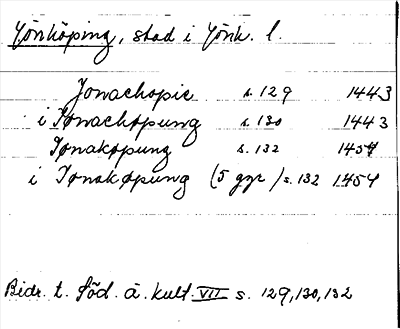 Jönköping, stad i Jönk. l.
Jonachopie s. 129 1443
i Jonachopung s. 130 1443
Jonakopung s. 132 1454
i Jonakøpung (5 ggr) s. 132 1454
Bidr. t. Söd. å. kult. VII s. 129, 130, 132